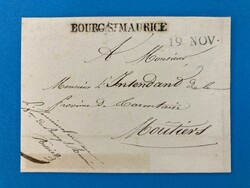 BOURG-ST MAURICE
19 NOV.
A Monsieur
Monsieur L'Intendant de la
Province de Tarentaise
Moûtiers